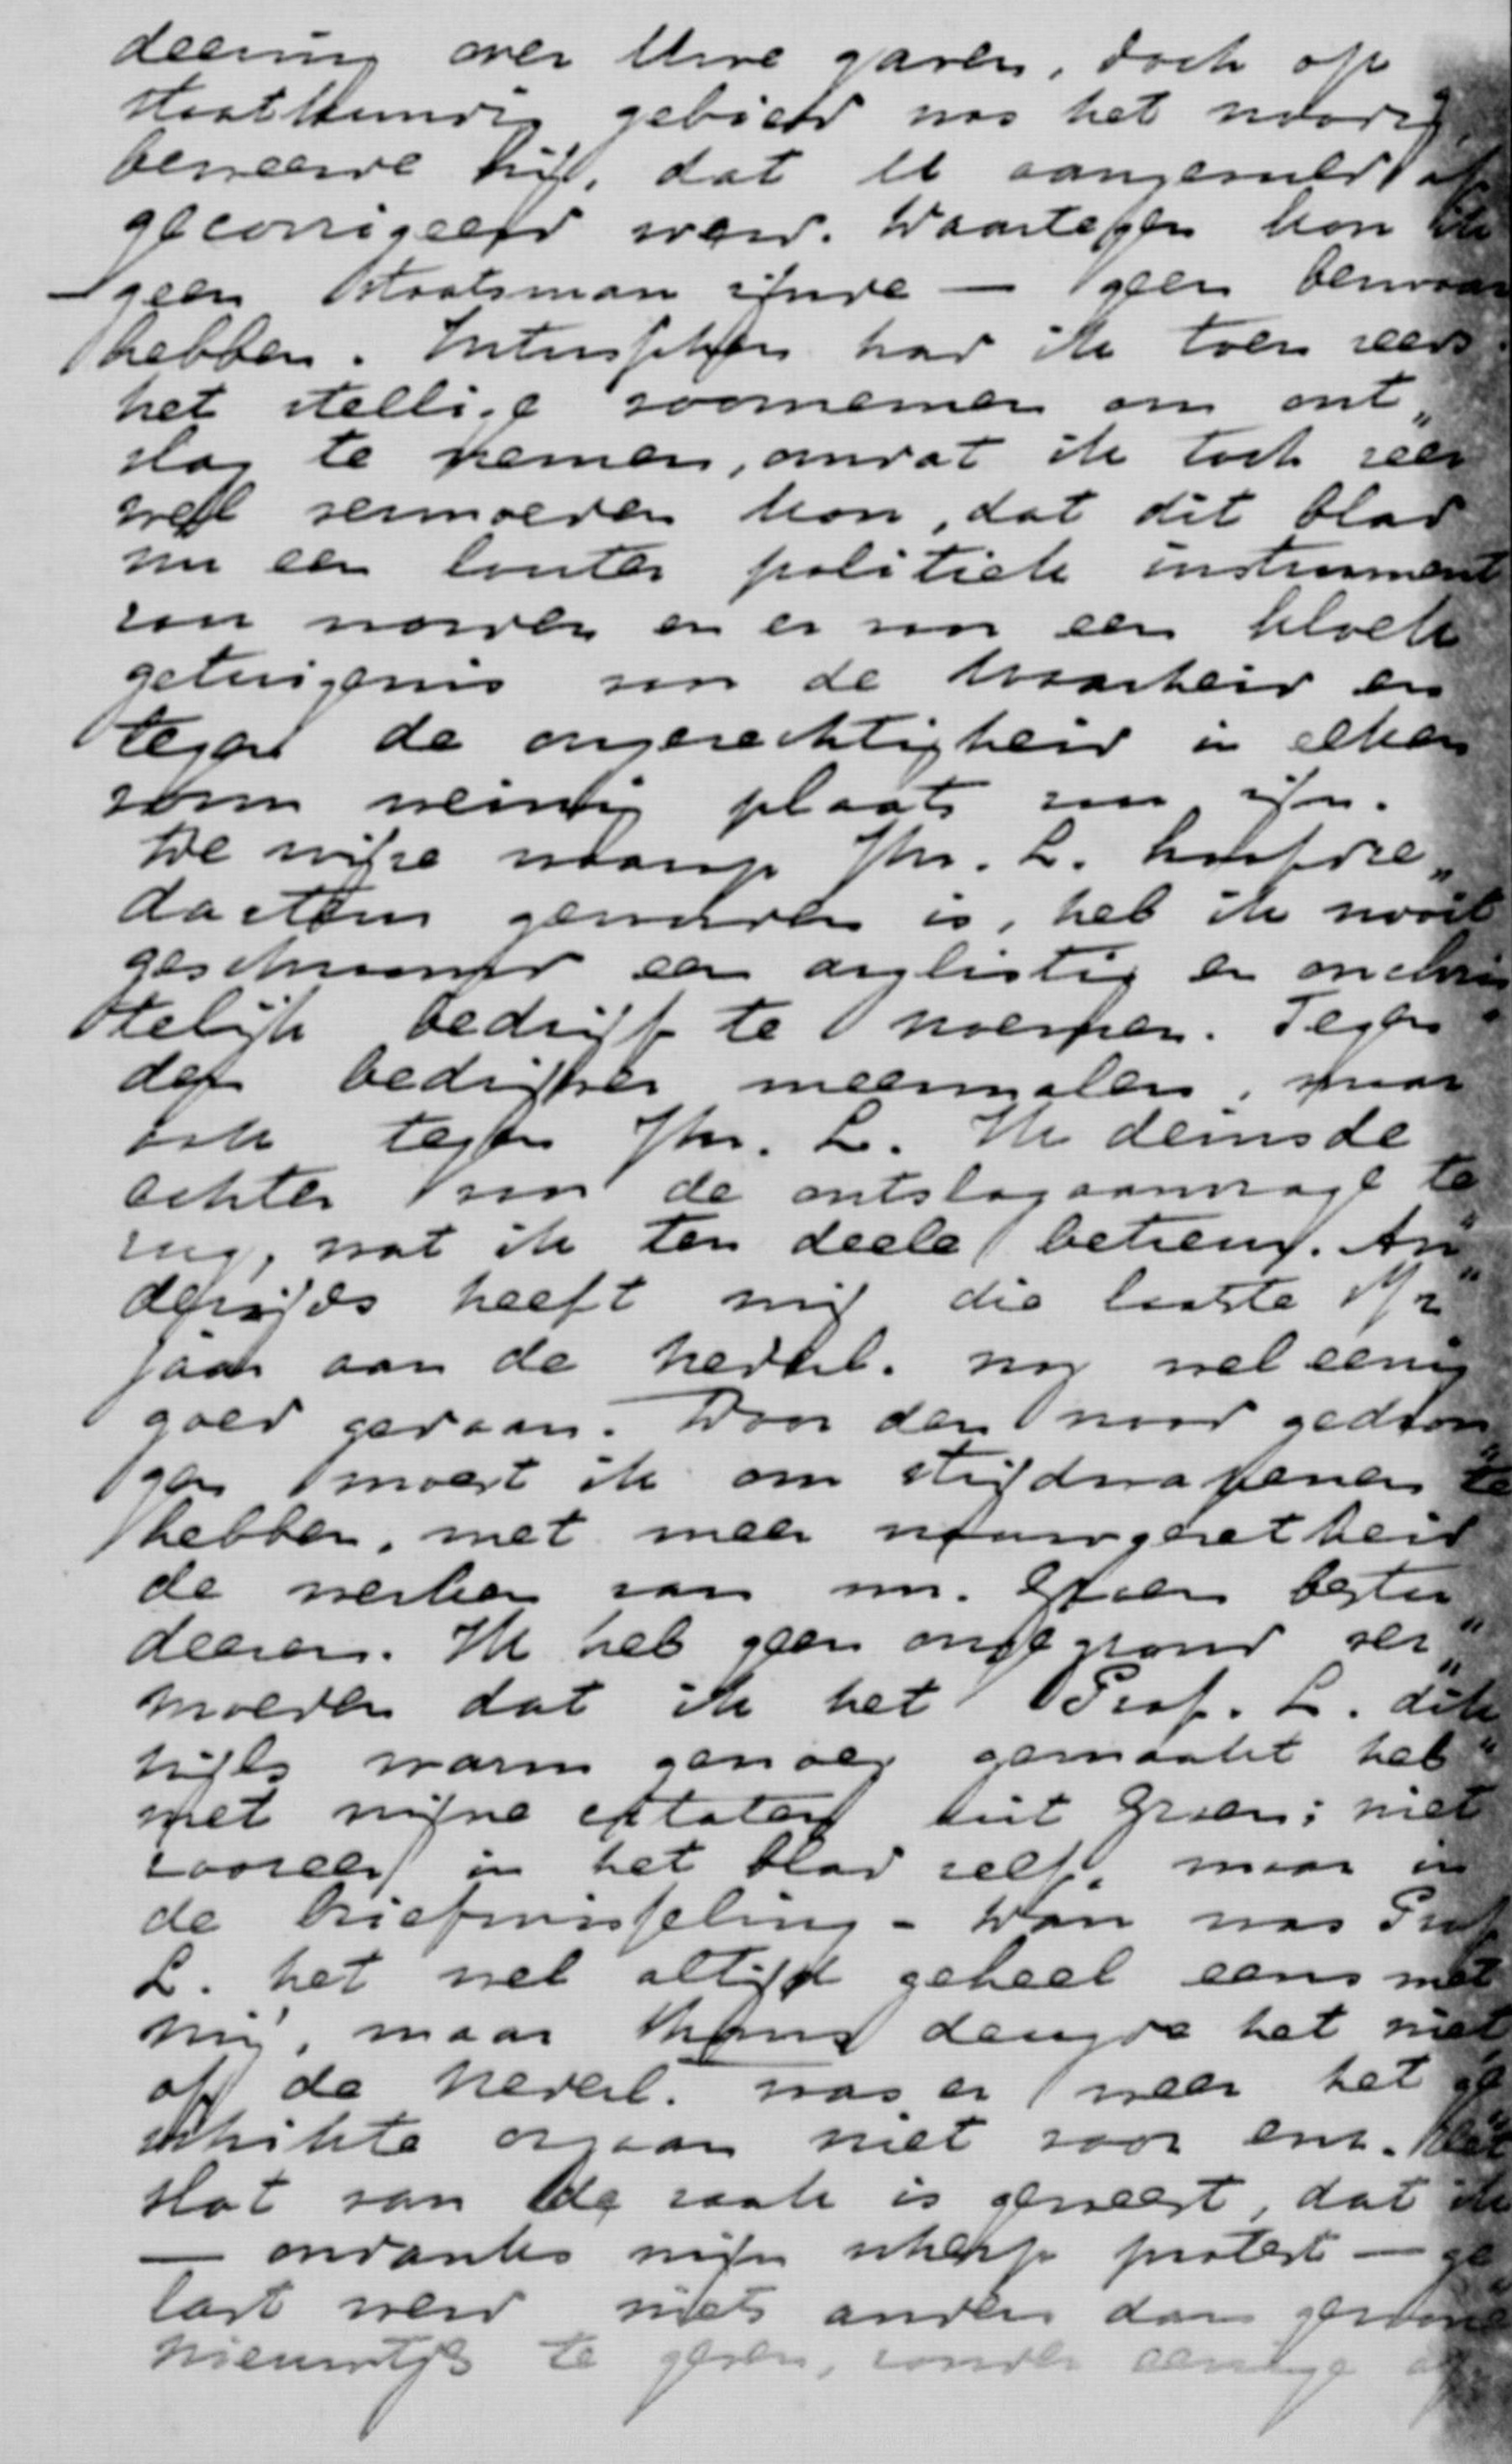 deering over Uwe gaven, doch op
staatkundig gebied was het noodig,
beweerde hij, dat U aangevuld of
gecorrigeerd werd. Waartegen kon ik
— geen staatsman zijnde — geen bezwaar
hebben. Intusschen had ik toen reeds
het stellige voornemen om ont„
slag te nemen, omdat ik toch zeer
wel vermoeden kon, dat dit blad
nu een louter politiek instrument
zou worden en er voor een kloek
getuigenis van de Waarheid en
tegen de ongerechtigheid in elken
vorm weinig plaats zou zijn.
De wijze waarop Jhr. L. hoofdre„
dacteur geworden is, heb ik nooit
geschroomd een arglistig en onchris
telijk bedrijf te noemen. Tegen
den bedrijver meermalen, maar
ook tegen Jhr. L. Ik deinsde
echter voor de ontslagaanvrage te
rug, wat ik ten deele betreur. An„
derzijds heeft mij die laatste 1/2
jaar aan de Nederl. nog wel eenig
goed gedaan. Door den nood gedron„
gen moest ik om strijdwapenen te
hebben, met meer nauwgezetheid
de werken van mr. Groen bestu„
deeren. Ik heb geen ongegrond ver„
moeden dat ik het Prof. L. dik„
wijls warm genoeg gemaakt heb
met mijne citaten uit Groen; niet
zoozeer in het blad zelf, maar in
de briefwisseling - Dan was Prof
L. het wel altijd geheel eens met
mij, maar thans deugde het niet,
of de Nederl. was er weer het ge
schikte orgaan niet voor enz. Het
slot van de zaak is geweest, dat ik
— ondanks mijn scherp protest — ge
last werd niets anders dan gewone
nieuwtjes te geven, zonder eenige